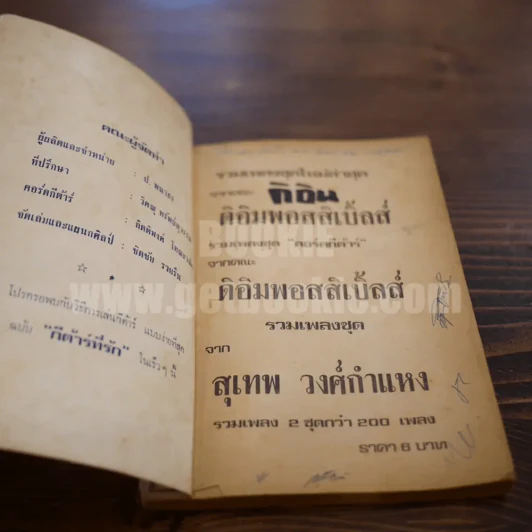 คณะผู้จัดทำ
ผู้ผลิตและจำหน่าย : ป.
ที่ปรึกษา :
คอร์ดกีต้าร์ :
จัดเล่มและแยกศิลป์ :
โปรดรอพบกับวิธีการเล่นกีต้าร์ แบบง่ายที่สุด
ฉบับ "กีต้าร์ที่รัก" ในเร็วๆ นี้
ดิอิน
ดิอิมพอสสิเบิ้ลส์
รวมเพลงชุด "คอร์ดกีต้าร์"
จากคณะ
ดิอิมพอสสิเบิ้ลส์
รวมเพลงชุด
จาก
สุเทพ วงศ์กำแหง
รวมเพลง 2 ชุดกว่า 200 เพลง
ราคา 6 บาท
BOOKIE
www.getbookie.com